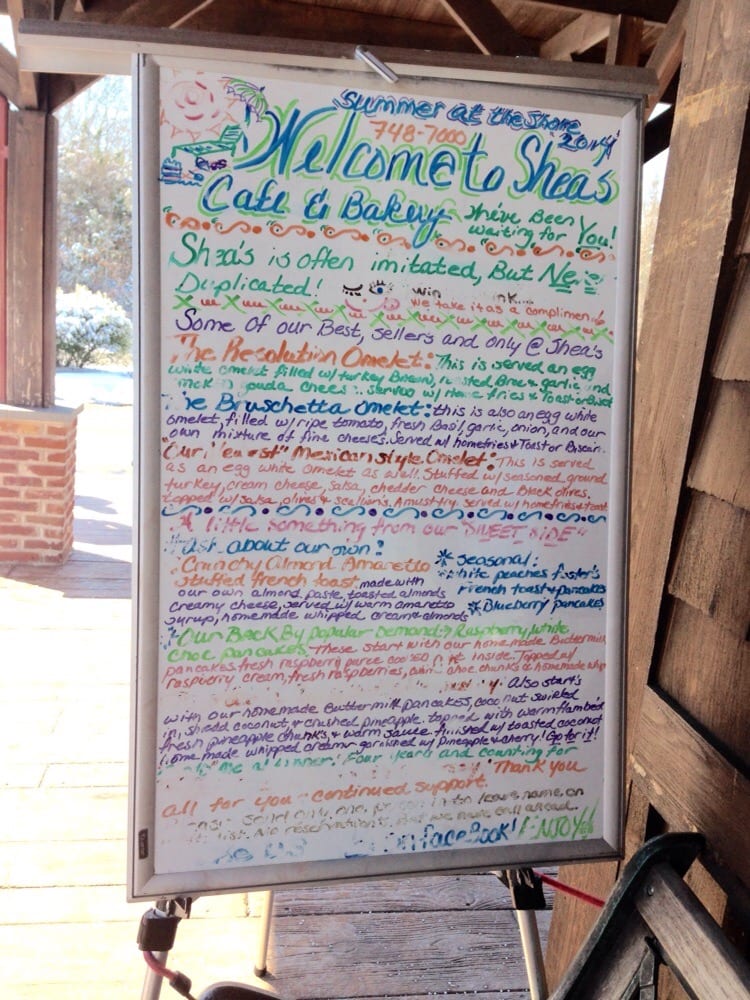 summer at the Shore
748-7000
2014
Welcome to Sheas
Cafe & Bakery
We've Been
waiting for You!
Shea's is often imitated, But
Duplicated!
win
we take it as a compliment
Some of our Best, sellers and only @ Shea's
The Resolution Omelet: This is served an egg
white omelet filled w/ turkey Bacon, & garlic and
gouda w/ Home fries & Toast or
The Bruschetta Omelet: this is also an egg white
omelet, filled w/ ripe tomato, fresh Basil, garlic, onion, and our
own mixture of fine cheeses. Served w/ homefries & Toast or Biscan.
Mexican style Omelet: This is served
as an egg white omelet as well. Stuffed w/ seasoned ground
turkey, cream cheese, salsa, chedder cheese and Black olives.
topped w/ salsa, olives & scallions. A must try. served w/ homefries & toast
A little something from our "SWEET SIDE"
Ask about our own?
Crunchy Almond Amaretto
stuffed french toast. made with
our own almond paste, toasted almonds
creamy cheese, served w/ warm amaretto
syrup, homemade whipped cream & almonds
* seasonal:
white peaches foster's
French toast & pancakes
* Blueberry pancakes
Our Back By popular Demand? Raspberry, white
choc pancakes. These start with our homemade Buttermilk
pancakes, fresh raspberry puree inside. Topped w/
raspberry cream, fresh raspberries, choc chunks & homemade whip
Also starts
with our homemade Buttermilk pancakes, coconut swirled
in, shedd coconut, & crushed pineapple. topped with warm flambed
fresh pineapple chunks, & warm sauce. finished w/ toasted coconut
home made whipped cream & garnished w/ pineapple & cherry! Go for it!
a winner! Four years and counting
Thank you
all for you continued support.
only one person in to leave name, on
list. No reservations. But we have call ahead.
on FaceBook! ENJOY